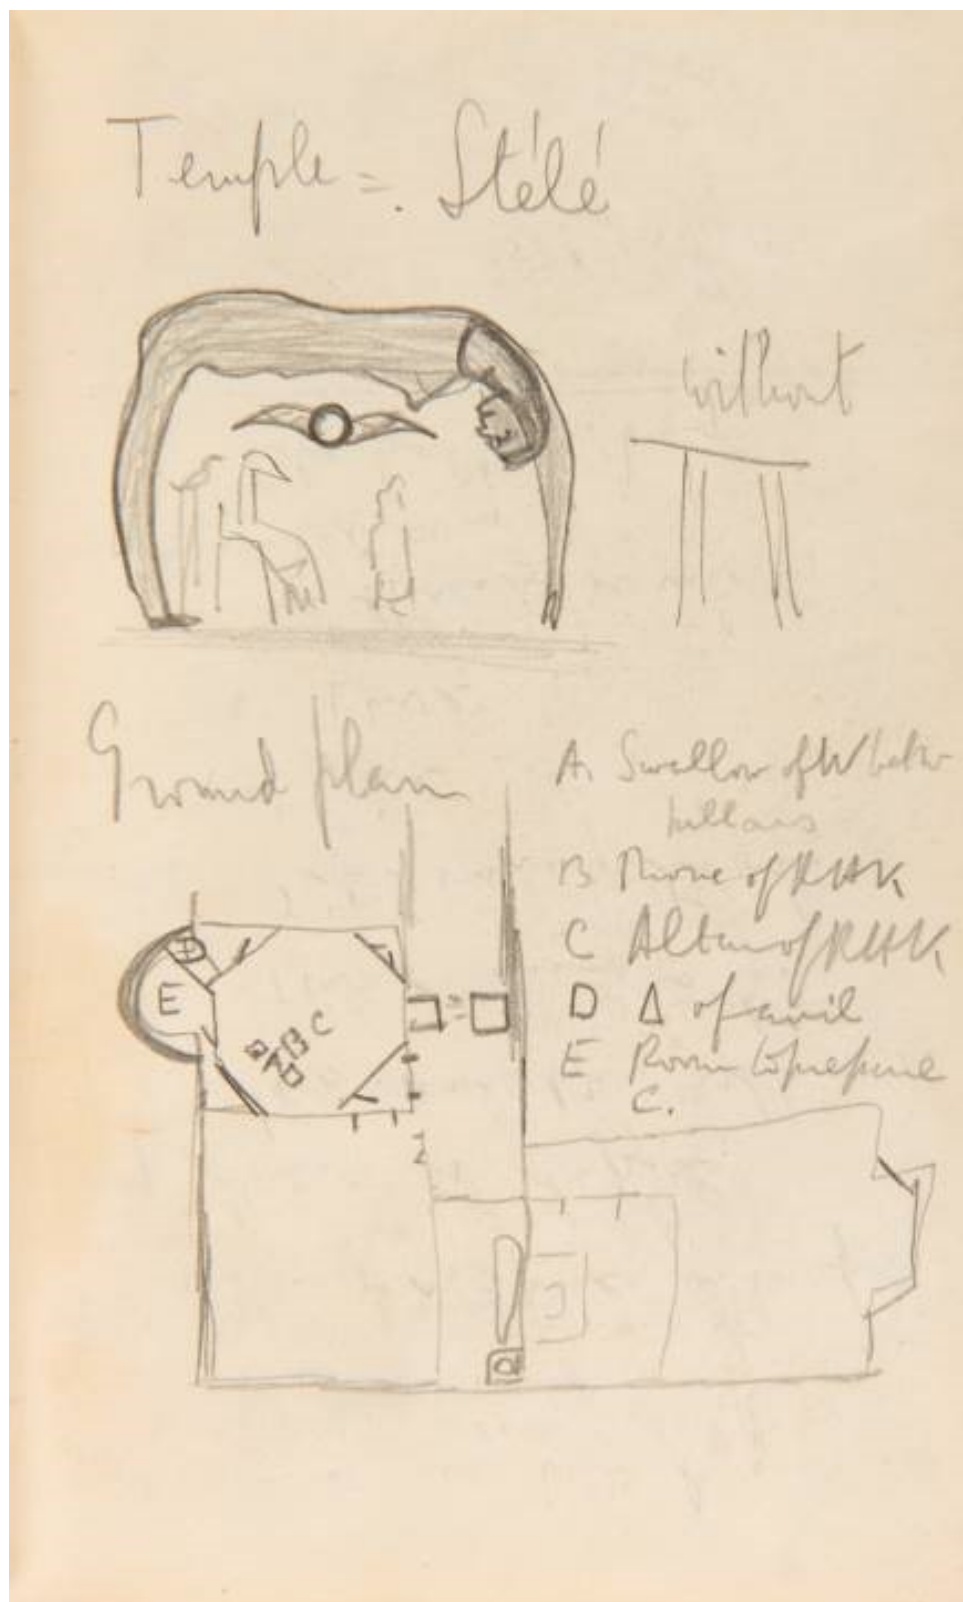 Temple = Stélé
without
Ground plan
A. Swallow of W
B Throne of RHK
C Altar of RHK
D Δ of anvil
E Room to prepare
C.
E
C
B
A